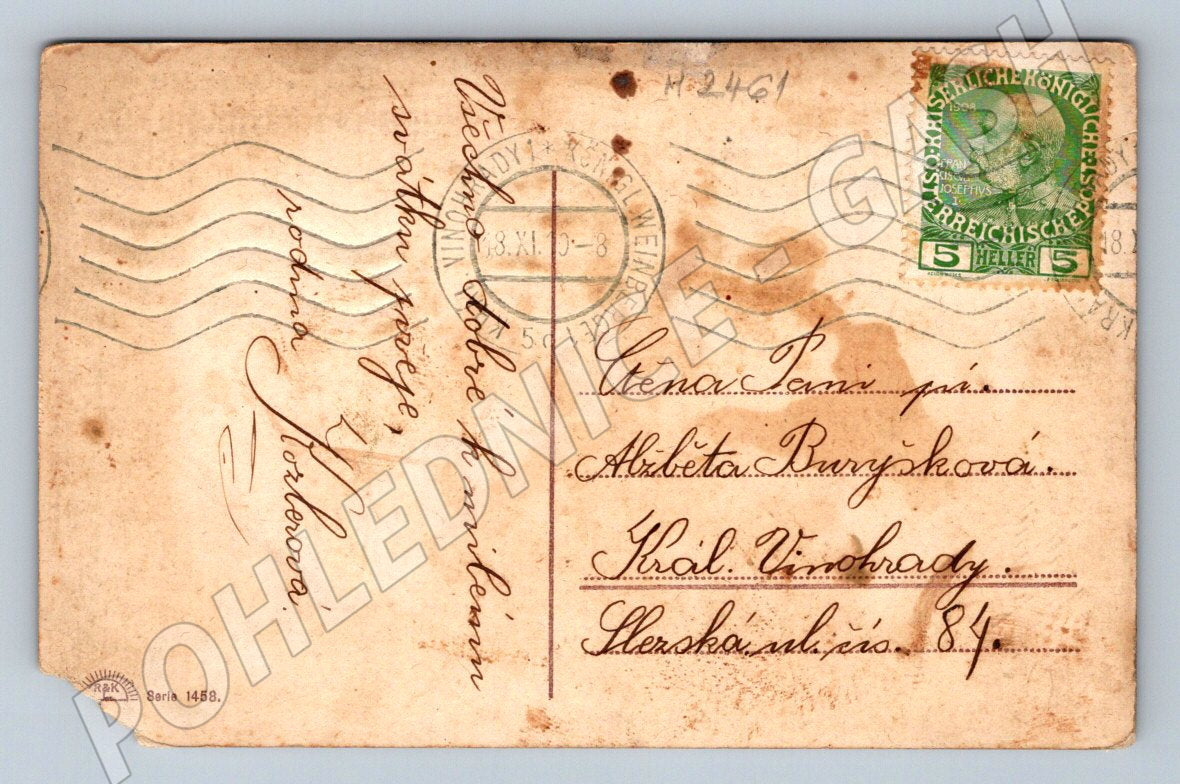 H 2461
Všechno dobré k milému
svátku přeje,
rodina
Kozlerová.
VINOHRADY 1 * KÖNIGL. WEINBERGE 1
18.XI. 0-8
KAISERLICHE KÖNIGLICHE ÖSTERREICHISCHE POST
1908
FRAN
CISCVS
JOSEPHVS
I
5 HELLER 5
18.X
Ctěná Paní pí.
Alžběta Buryšková.
Král. Vinohrady.
Slezská ul. čís. 84.
R&K
Serie 1458.
POHLEDNICE - GAPH